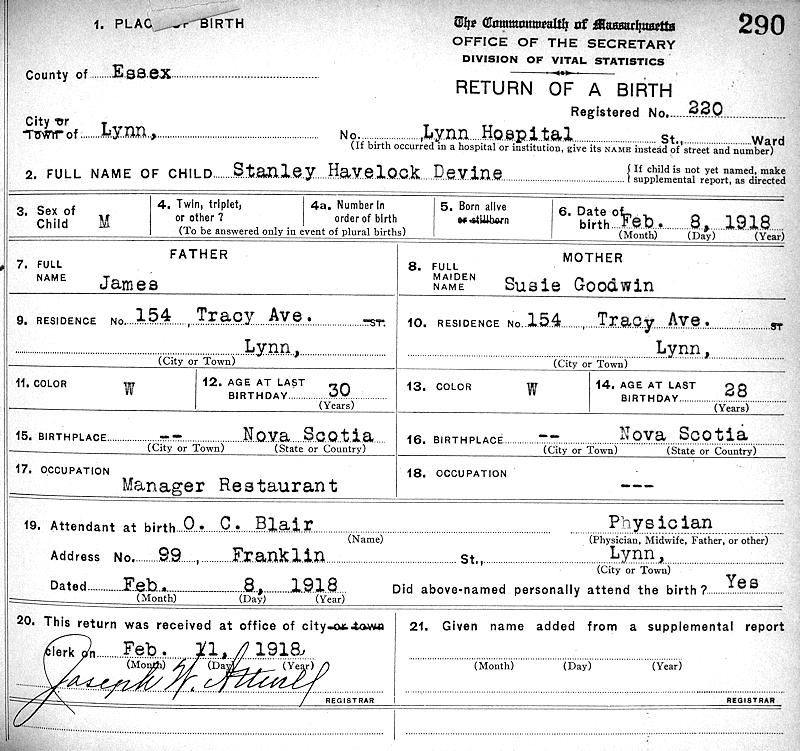 1. PLACE OF BIRTH
The Commonwealth of Massachusetts
290
OFFICE OF THE SECRETARY
DIVISION OF VITAL STATISTICS
RETURN OF A BIRTH
County of Essex
Registered No. 220
City or Town of Lynn, No. Lynn Hospital St., Ward
(If birth occurred in a hospital or institution, give its NAME instead of street and number)
2. FULL NAME OF CHILD Stanley Havelock Devine { If child is not yet named, make supplemental report, as directed
3. Sex of Child M
4. Twin, triplet, or other ?
4a. Number in order of birth
(To be answered only in event of plural births)
5. Born alive or stillborn
6. Date of birth Feb. 8, 1918
(Month) (Day) (Year)
FATHER
7. FULL NAME James
MOTHER
8. FULL MAIDEN NAME Susie Goodwin
9. RESIDENCE No. 154, Tracy Ave. ST.
Lynn,
(City or Town)
10. RESIDENCE No. 154, Tracy Ave. ST
Lynn,
(City or Town)
11. COLOR W
12. AGE AT LAST BIRTHDAY 30
(Years)
13. COLOR W
14. AGE AT LAST BIRTHDAY 28
(Years)
15. BIRTHPLACE -- Nova Scotia
(City or Town) (State or Country)
16. BIRTHPLACE -- Nova Scotia
(City or Town) (State or Country)
17. OCCUPATION
Manager Restaurant
18. OCCUPATION
---
19. Attendant at birth O. C. Blair Physician
(Name) (Physician, Midwife, Father, or other)
Address No. 99, Franklin St., Lynn,
(City or Town)
Dated Feb. 8, 1918 Did above-named personally attend the birth? Yes
(Month) (Day) (Year)
20. This return was received at office of city or town
clerk on Feb. 11, 1918
(Month) (Day) (Year)
Joseph W. Attwill
REGISTRAR
21. Given name added from a supplemental report
(Month) (Day) (Year)
REGISTRAR